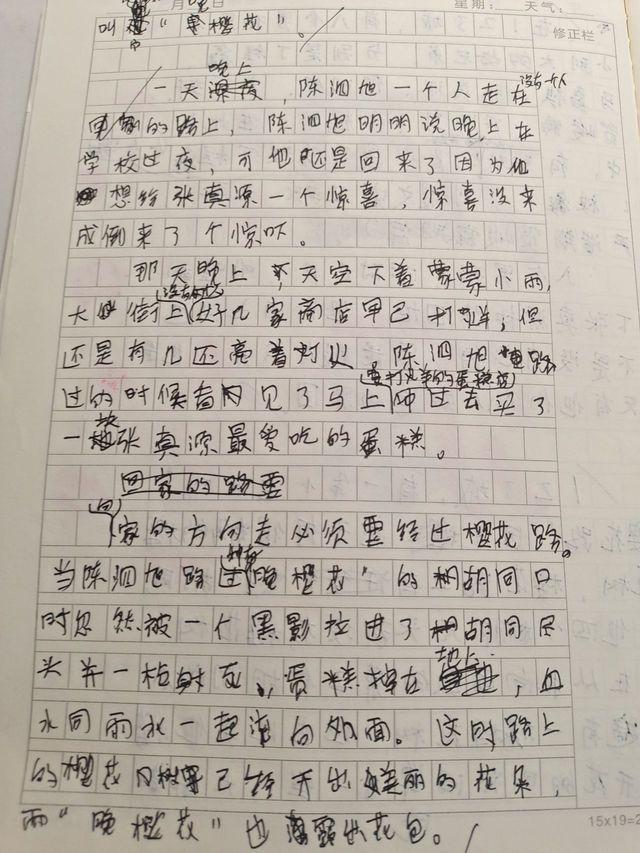 月 星期： 天气：
叫“晚樱花”。 修正栏
一天晚上，陈泗旭一个人走在没有人
回家的路上，陈泗旭明明说晚上在
学校过夜，可他还是回来了因为他
想给张真源一个惊喜，惊喜没来
成倒来了个惊吓。
那天晚上天空下着蒙蒙小雨，
大街上好几家商店早已打烊，但
还是有几还亮着灯处 陈泗旭路
过的时候看见了马上要打烊的蛋糕店冲过去买了
一块张真源最爱吃的蛋糕。
回家的路要
回家的方向走必须要经过樱花路。
当陈泗旭路过晚樱花”的胡同口
时忽然被一个黑影拉进了胡同尽
头并一枪射死，蛋糕掉在地上，血
水同雨水一起流向外面。这时路上
的樱花树已经天出美丽的花朵，
而“晚樱花”也露出花包。
15x19=2